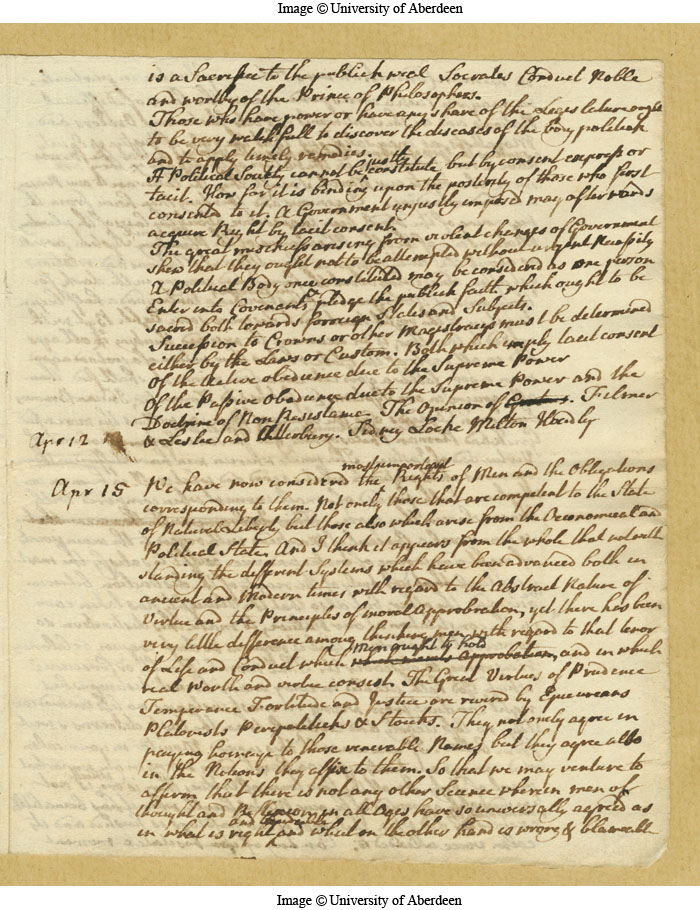 Image © University of Aberdeen
is a Sacrifice to the publick weal Socrates Conduct Noble
and worthy of the Prince of Philosophers.
Those who have power or have any share of the Legislature ought
to be very watchfull to discover the diseases of the body politick
and to apply timely remedies.
A Political Society cannot be justly constitute but by consent express or
tacit. How far it is binding upon the posterity of those who first
consented to it. A Government unjustly imposed may afterwards
acquire Right by tacit consent.
The great mischiefs arising from violent changes of Government
shew that they ought not to be attempted without urgent Necessity
A Political Body once constituted may be considered as one person
Enter into Covenants pledge the publick faith which ought to be
sacred both towards forreign States and Subjects.
Succession to Crowns or other Magistracys must be determined
either by the Laws or Custom. Both which imply tacit consent
Of the Active obedience due to the Supreme Power
Of the Passive Obedience due to the Supreme Power and the
Doctrine of Non Resistance The Opinion of Filmer
Apr 12 & Leslie and Atterbury. Sidney Locke Milton Hoadly
Apr 15 We have now considered the most important Rights of Men and the Obligations
corresponding to them. Not onely those that are competent to the State
of Natural Liberty but those also which arise from the Oeconomical and
Political State. And I think it appears from the whole that notwith
standing the different Systems which have been advanced both in
ancient and Modern times with regard to the Abstract Nature of
Virtue and the Principles of moral Approbation, yet there has been
very little difference among thinking men with regard to that tenor
of Life and Conduct which Men ought to hold which merits Approbation, and in which
real Worth and virtue consist. The Great Virtues of Prudence
Temperance Fortitude and Justice are revered by Epicureans
Platonists Peripateticks & Stoicks. They not onely agree in
paying homage to those venerable Names but they agree also
in the Notions they affix to them. So that we may venture to
affirm that there is not any other Science wherein men of
thought and in all Ages have so universally agreed as
in what is right and laudable and what on the other hand is wrong & blameable
Image © University of Aberdeen